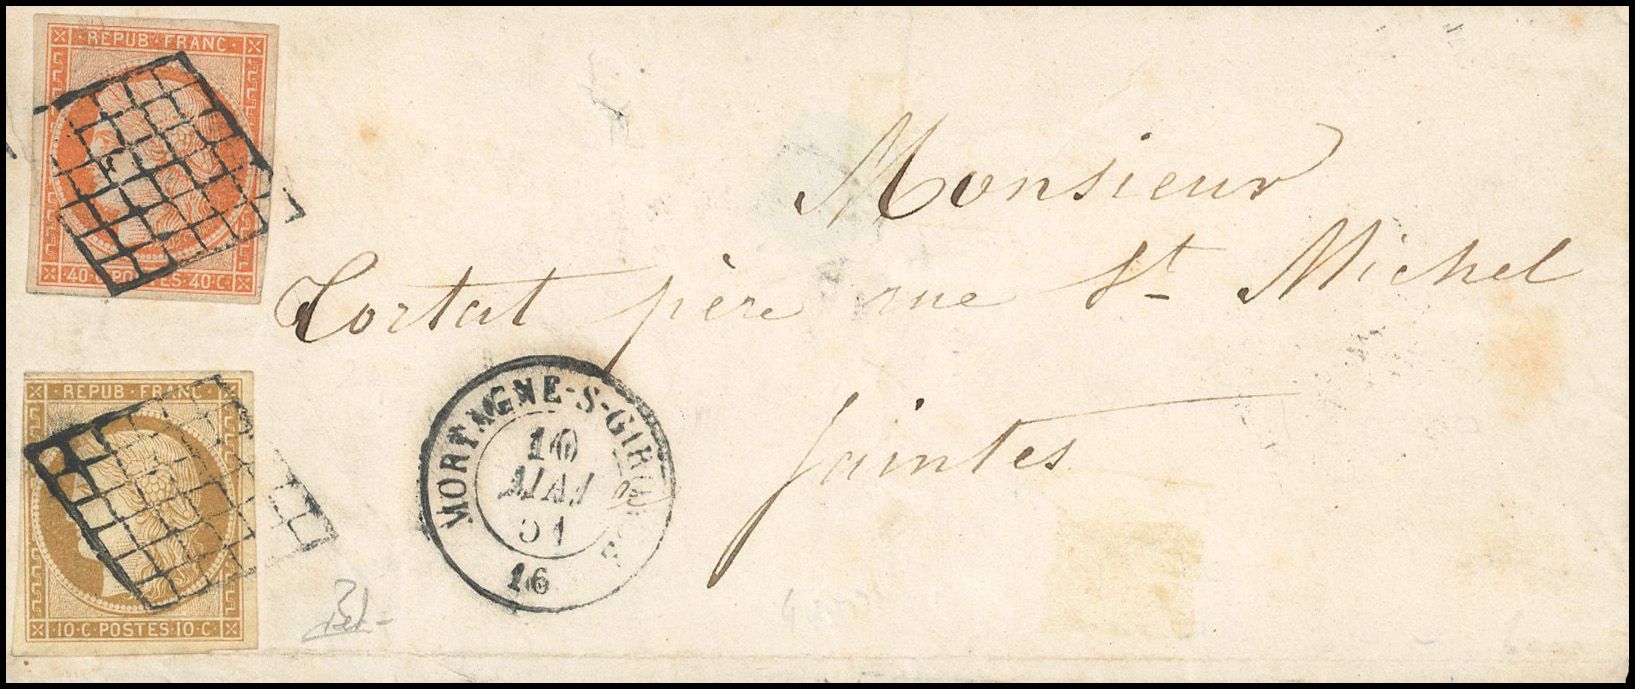 REPUB·FRANC·
·40·C·POSTES·40·C·
Monsieur
Tortat père rue St Michel
Saintes
·REPUB·FRANC·
·10·C·POSTES·10·C·
MORTAGNE-S-GIRONDE
10
MAI
51
16